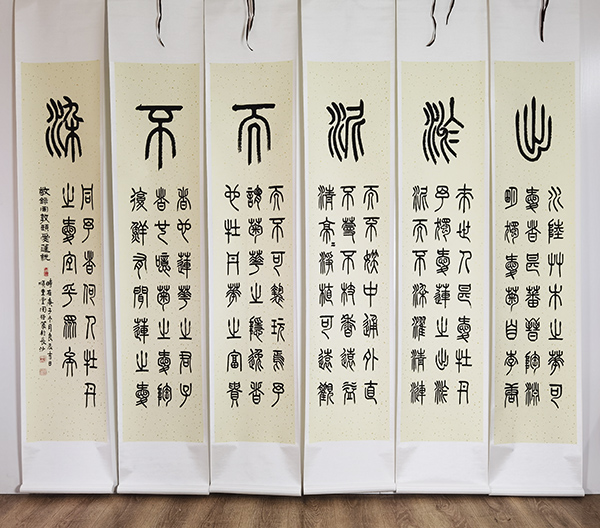 出
水陸艸木之華可
愛者甚蕃晉陶淵
明獨愛菊自李唐
淤
來世人甚愛牡丹
予獨愛蓮之出淤
泥而不染濯清漣
泥
而不妖中通外直
不蔓不枝香遠益
清亭=淨植可遠觀
而
而不可褻玩焉予
謂菊華之隱逸者
也牡丹華之富貴
不
者也蓮華之君子
者也噫菊之愛陶
後鮮有聞蓮之愛
染
同予者何人牡丹
之愛宜乎眾矣
敬錄周敦頤愛蓮說